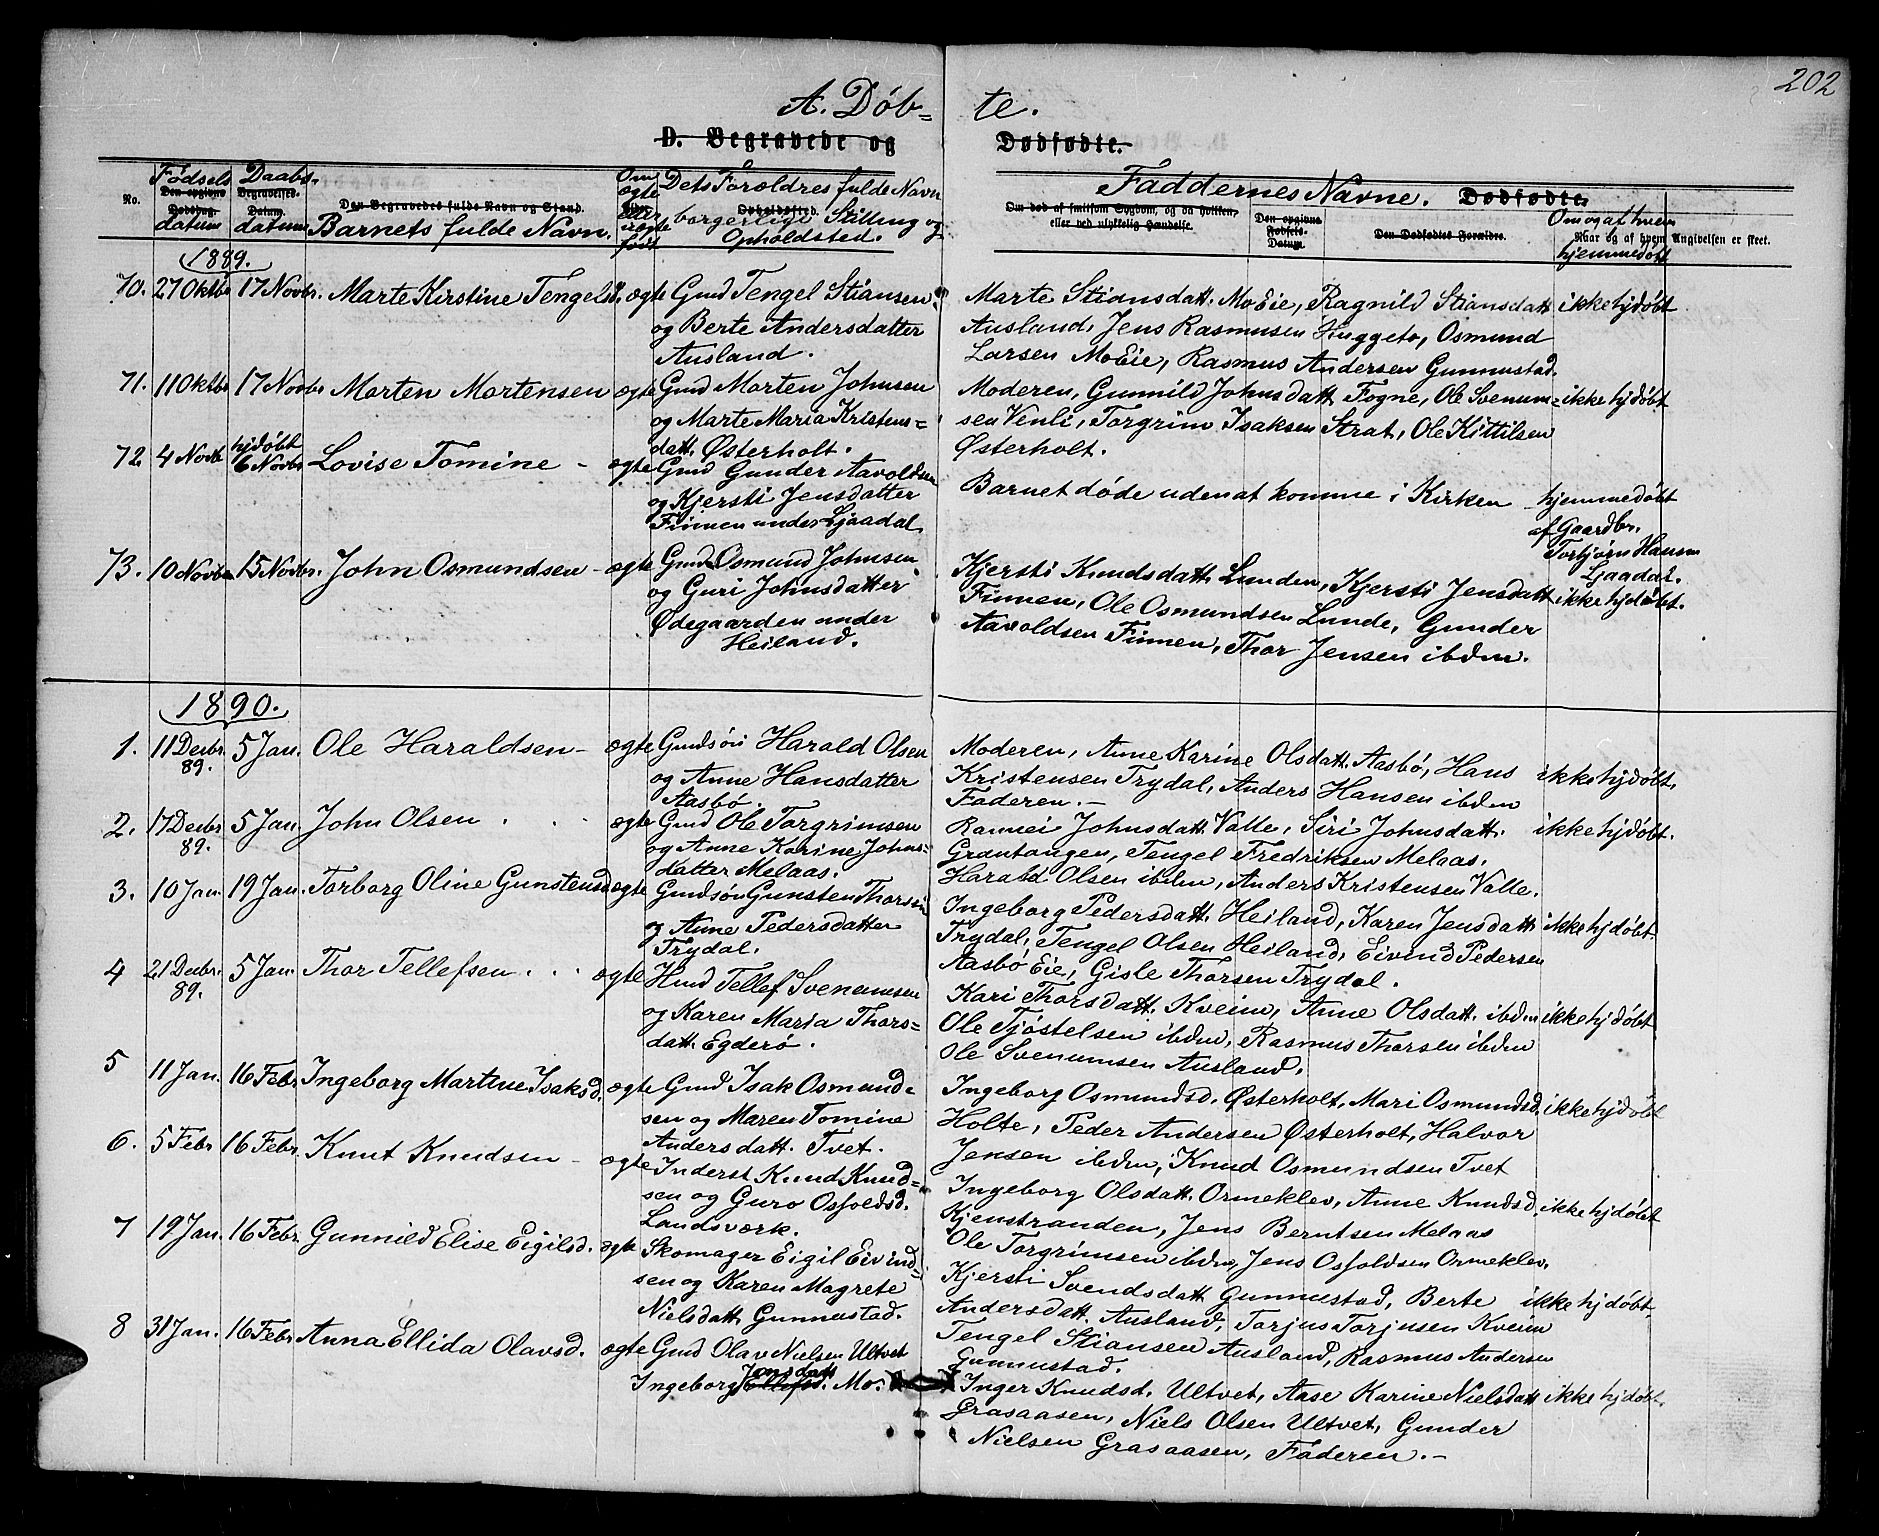 202
A. Döb= te.
D. Begravede og Dødfødte.
No.
Fødsels datum
Den opgivne Dødsdag.
Daabs. datum
Begravelses-Datum.
Den Begravedes fulde Navn og Stand.
Barnets fulde Navn.
Om ægte eller uægte født
Dets Forældres fulde Navn
Opholdssted.
borgerlige Stilling og
Opholdsted.
Faddernes Navne.
Dødfødte.
Om død af smitsom Sygdom, og da hvilken,
eller ved ulykkelig Hændelse.
Den opgivne Fødsels-Datum.
Den Dødfødtes Forældre.
Om og af hvem
Naar og af hvem Angivelsen er skeet.
hjemmedøbt
1889.
70. 27 Oktbr 17 Novbr. Marte Kirstine Tengelsd. ægte Gmd Tengel Stiansen
og Berte Andersdatter
Ausland.
Marte Stiansdatt. MoEie, Ragnild Stiansdatt. ikke hjdøbt
Ausland, Jens Rasmusen Huggeto, Osmund
Larsen MoEie, Rasmus Andersen Gunnustad.
71. 11 Oktbr 17 Novbr Morten Mortensen ægte Gmd Morten Johnsen
og Marte Maria Kristens=
datt. Østerholt.
Moderen, Gunnild Johnsdatt. Fogne, Ole Svenum= ikke hjdøbt
sen Venli, Torgrim Isaksen Strat, Ole Kittilsen
Østerholt.
72. 4 Novb hjdøbt 6 Novbr Lovise Tomine - ægte Gmd Gunder Aavoldsen
og Kjersti Jensdatter
Finnen under Ljaadal
Barnet døde uden at komme i Kirken hjemmedøbt
af Gaardbr.
Torbjørn Hansen
Ljaadal.
73. 10 Novbr 15 Novbr. John Osmundsen - ægte Gmd Osmund Johnsen
og Guri Johnsdatter
Ødegaarden under
Heiland.
Kjersti Knudsdatt. Lunden, Kjersti Jensdatt ikke hjdøbt.
Finnen, Ole Osmundsen Lunde, Gunder
Aavoldsen Finnen, Thor Jensen ibdm.
1890.
1. 11 Decbr. 89. 5 Jan. Ole Haraldsen - ægte Gmdsøn Harald Olsen
og Anne Hansdatter
Aasbø.
Moderen, Anne Karine Olsdatt. Aasbø, Hans ikke hjdøbt.
Kristensen Trydal, Anders Hansen ibdm
Faderen. -
2. 17 Decbr 89. 5 Jan. John Olsen . . . ægte Gmd Ole Torgrimsen
og Anne Karine Johns=
datter Melaas.
Rannei Johnsdatt. Valle, Siri Johnsdatt. ikke hjdøbt.
Grøntangen, Tengel Fredriksen Melaas.
Harald Olsen ibdm, Anders Kristensen Valle.
3. 10 Jan. 19 Jan. Torborg Oline Gunstensd ægte Gmdsøn Gunsten Thorsen
og Anne Pedersdatter
Trydal.
Ingeborg Pedersdatt. Heiland, Karen Jensdatt. ikke hjdøbt.
Trydal, Tengel Olsen Heiland, Eivind Pedersen
Aasbø Eie, Gisle Thorsen Trydal.
4 21 Decbr. 89. 5 Jan. Thor Tellefsen . . . ægte Hmd Tellef Svenumsen
og Karen Maria Thors=
datt. Egderø.
Kari Thorsdatt. Kveim, Anne Olsdatt. ibdm ikke hjdøbt
Ole Tjøstelsen ibdm, Rasmus Thorsen ibdm
Ole Svenumsen Ausland.
5 11 Jan. 16 Febr. Ingeborg Martine Isaksd. ægte Gmd Isak Osmund=
sen og Maren Tomine
Andersdatt. Tvet.
Ingeborg Osmundsd. Østerholt, Mari Osmundsd. ikke hjdøbt
Holte, Peder Andersen Østerholt, Halvor
Jensen ibdm, Knud Osmundsen Tvet
6. 5 Febr 16 Febr. Knut Knudsen - ægte Inderst Knud Knud=
sen og Guro Osfoldsd.
Landsværk.
Ingeborg Olsdatt. Ormeklev, Anne Knudsd. ikke hjdøbt
Kjenstranden, Jens Berntsen Melaas
Ole Torgrimsen ibdm, Jens Osfoldsen Ormeklev.
7 19 Jan. 16 Febr. Gunnild Elise Eigilsd. ægte Skomager Eigil Eivind=
sen og Karen Magrete
Nielsdatt. Gunnustad.
Kjersti Svendsdatt. Gunnustad, Berte ikke hjdøbt.
Andersdatt. Ausland, Torjus Torjusen Kveim
Tengel Stiansen Ausland, Rasmus Andersen
Gunnustad.
8 31 Jan. 16 Febr. Anna Ellida Olavsd. ægte Gmd Olav Nielsen Ultvet
Jensdatt
Ingeborg Ellefsd. Mo.
Inger Knudsd. Ultvet, Aase Karine Nielsdatt. ikke hjdøbt.
Grasaasen, Niels Olsen Ultvet, Gunder
Nielsen Grasaasen, Faderen. -